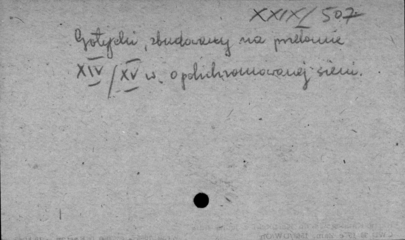 XXIX/507
Gotycki, zbudowany na przełomie
XIV/XV w. o polichromowanej sieni.